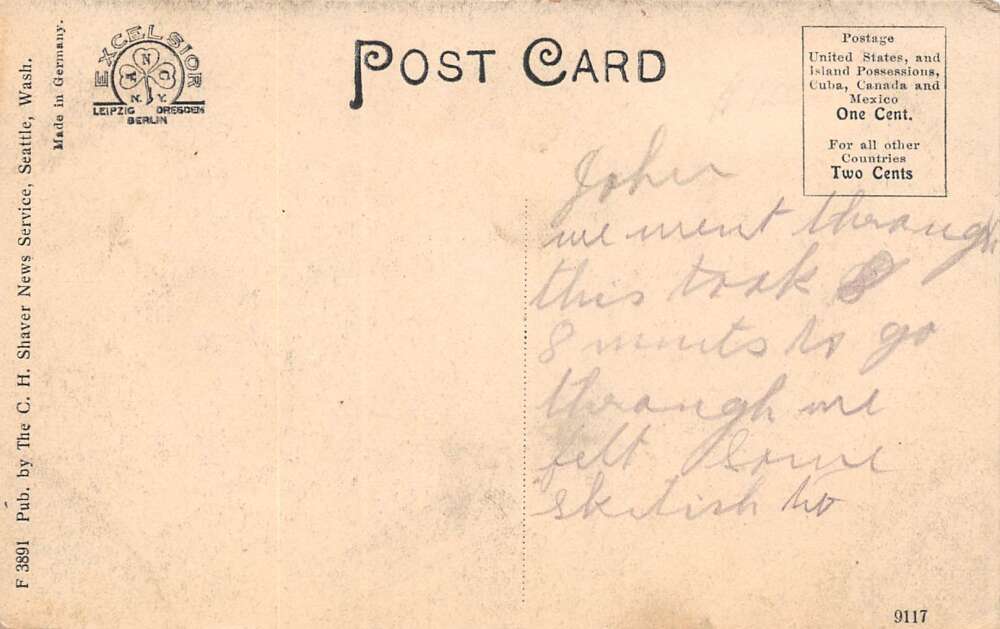 F 3891 Pub. by The C. H. Shaver News Service, Seattle, Wash.
Made in Germany.
EXCELSIOR
ANC
N. Y.
LEIPZIG DRESDEN
BERLIN
POST CARD
Postage
United States, and
Island Possessions,
Cuba, Canada and
Mexico
One Cent.
For all other
Countries
Two Cents
John
we went through
this took
8 minits to go
through we
felt some
skitish to
9117